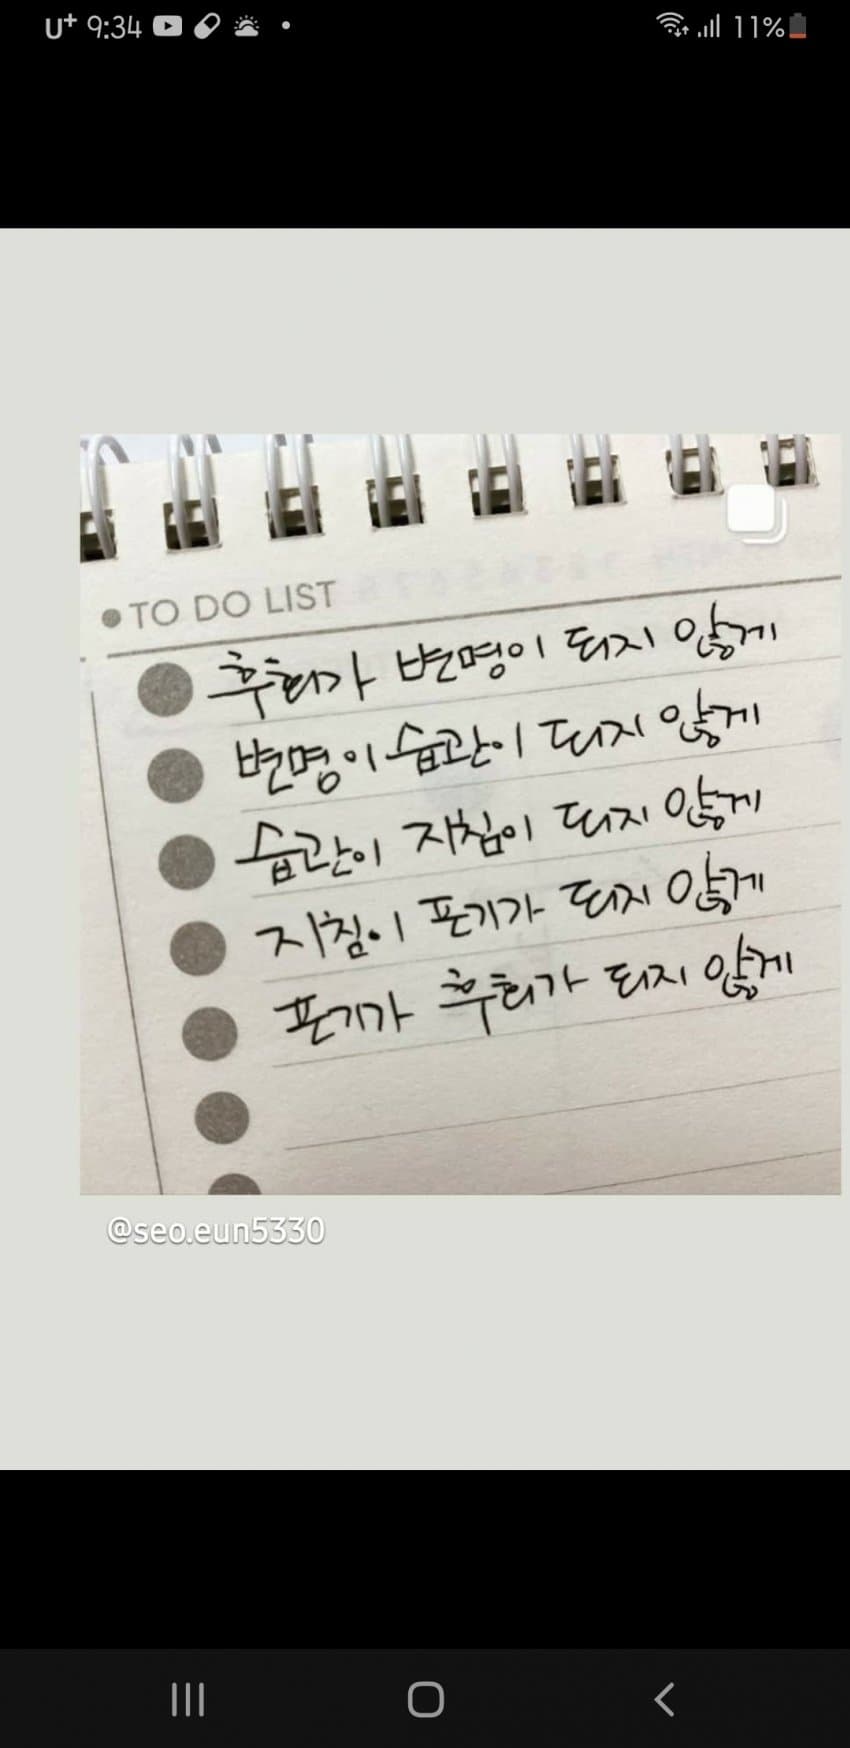 U+ 9:34 11%
TO DO LIST
후회가 변명이 되지 않게
변명이 습관이 되지 않게
습관이 지침이 되지 않게
지침이 포기가 되지 않게
포기가 후회가 되지 않게
@seo.eun5330